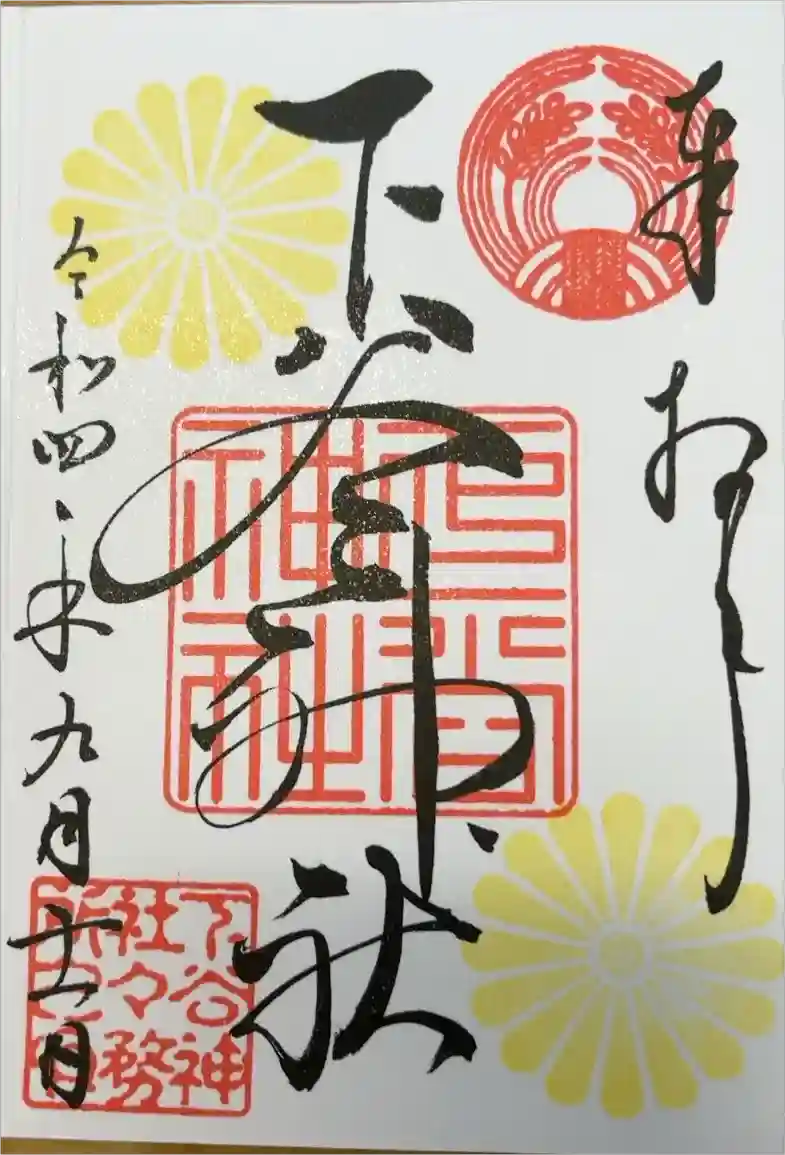 奉拝
下谷神社
下谷神社
令和四年九月十一日
下谷神
社々務
所之印